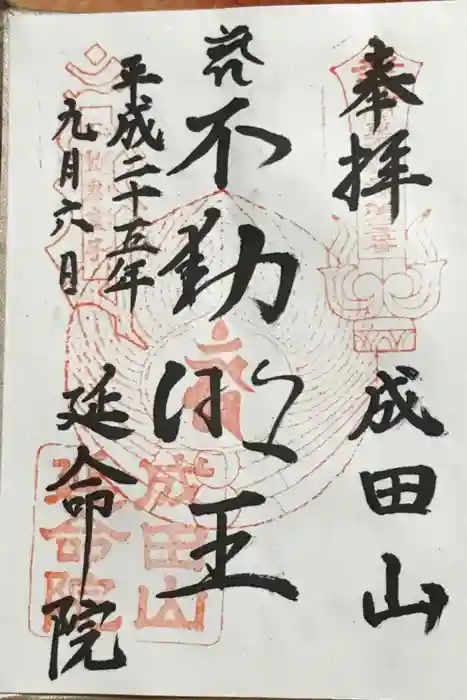 奉拝
成田山
不動明王
平成二十五年
九月六日
延命院
成田山
延命院